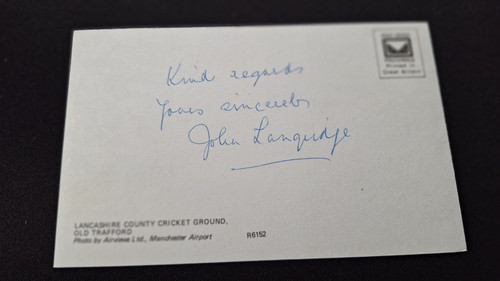 Kind regards
Yours sincerely
John Langridge
LANCASHIRE COUNTY CRICKET GROUND,
OLD TRAFFORD
Photo by Airviews Ltd., Manchester Airport
R6152